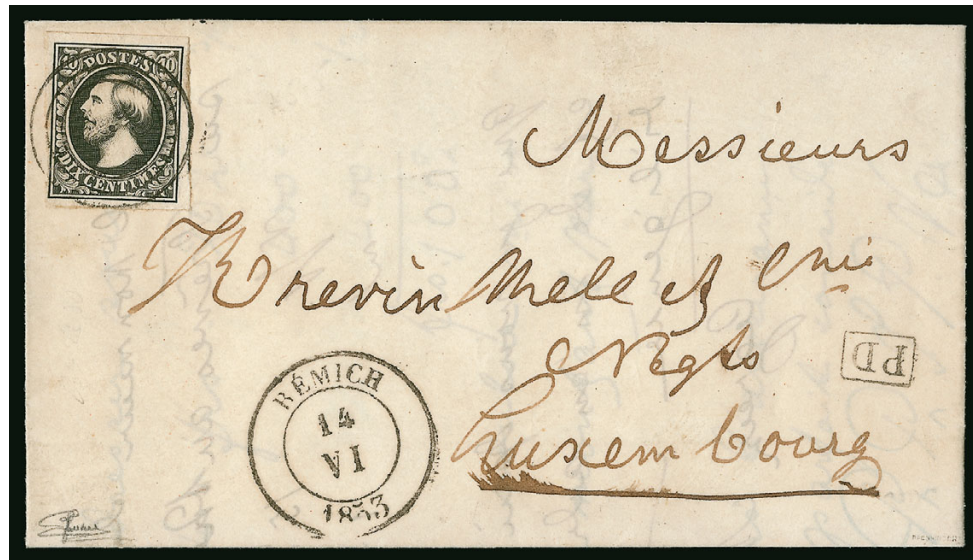 10 POSTES 10
DIX CENTIMES
Messieurs
Krevin Mele et Cnie
Negts
PD
Luxembourg
RÉMICH
14
VI
1853